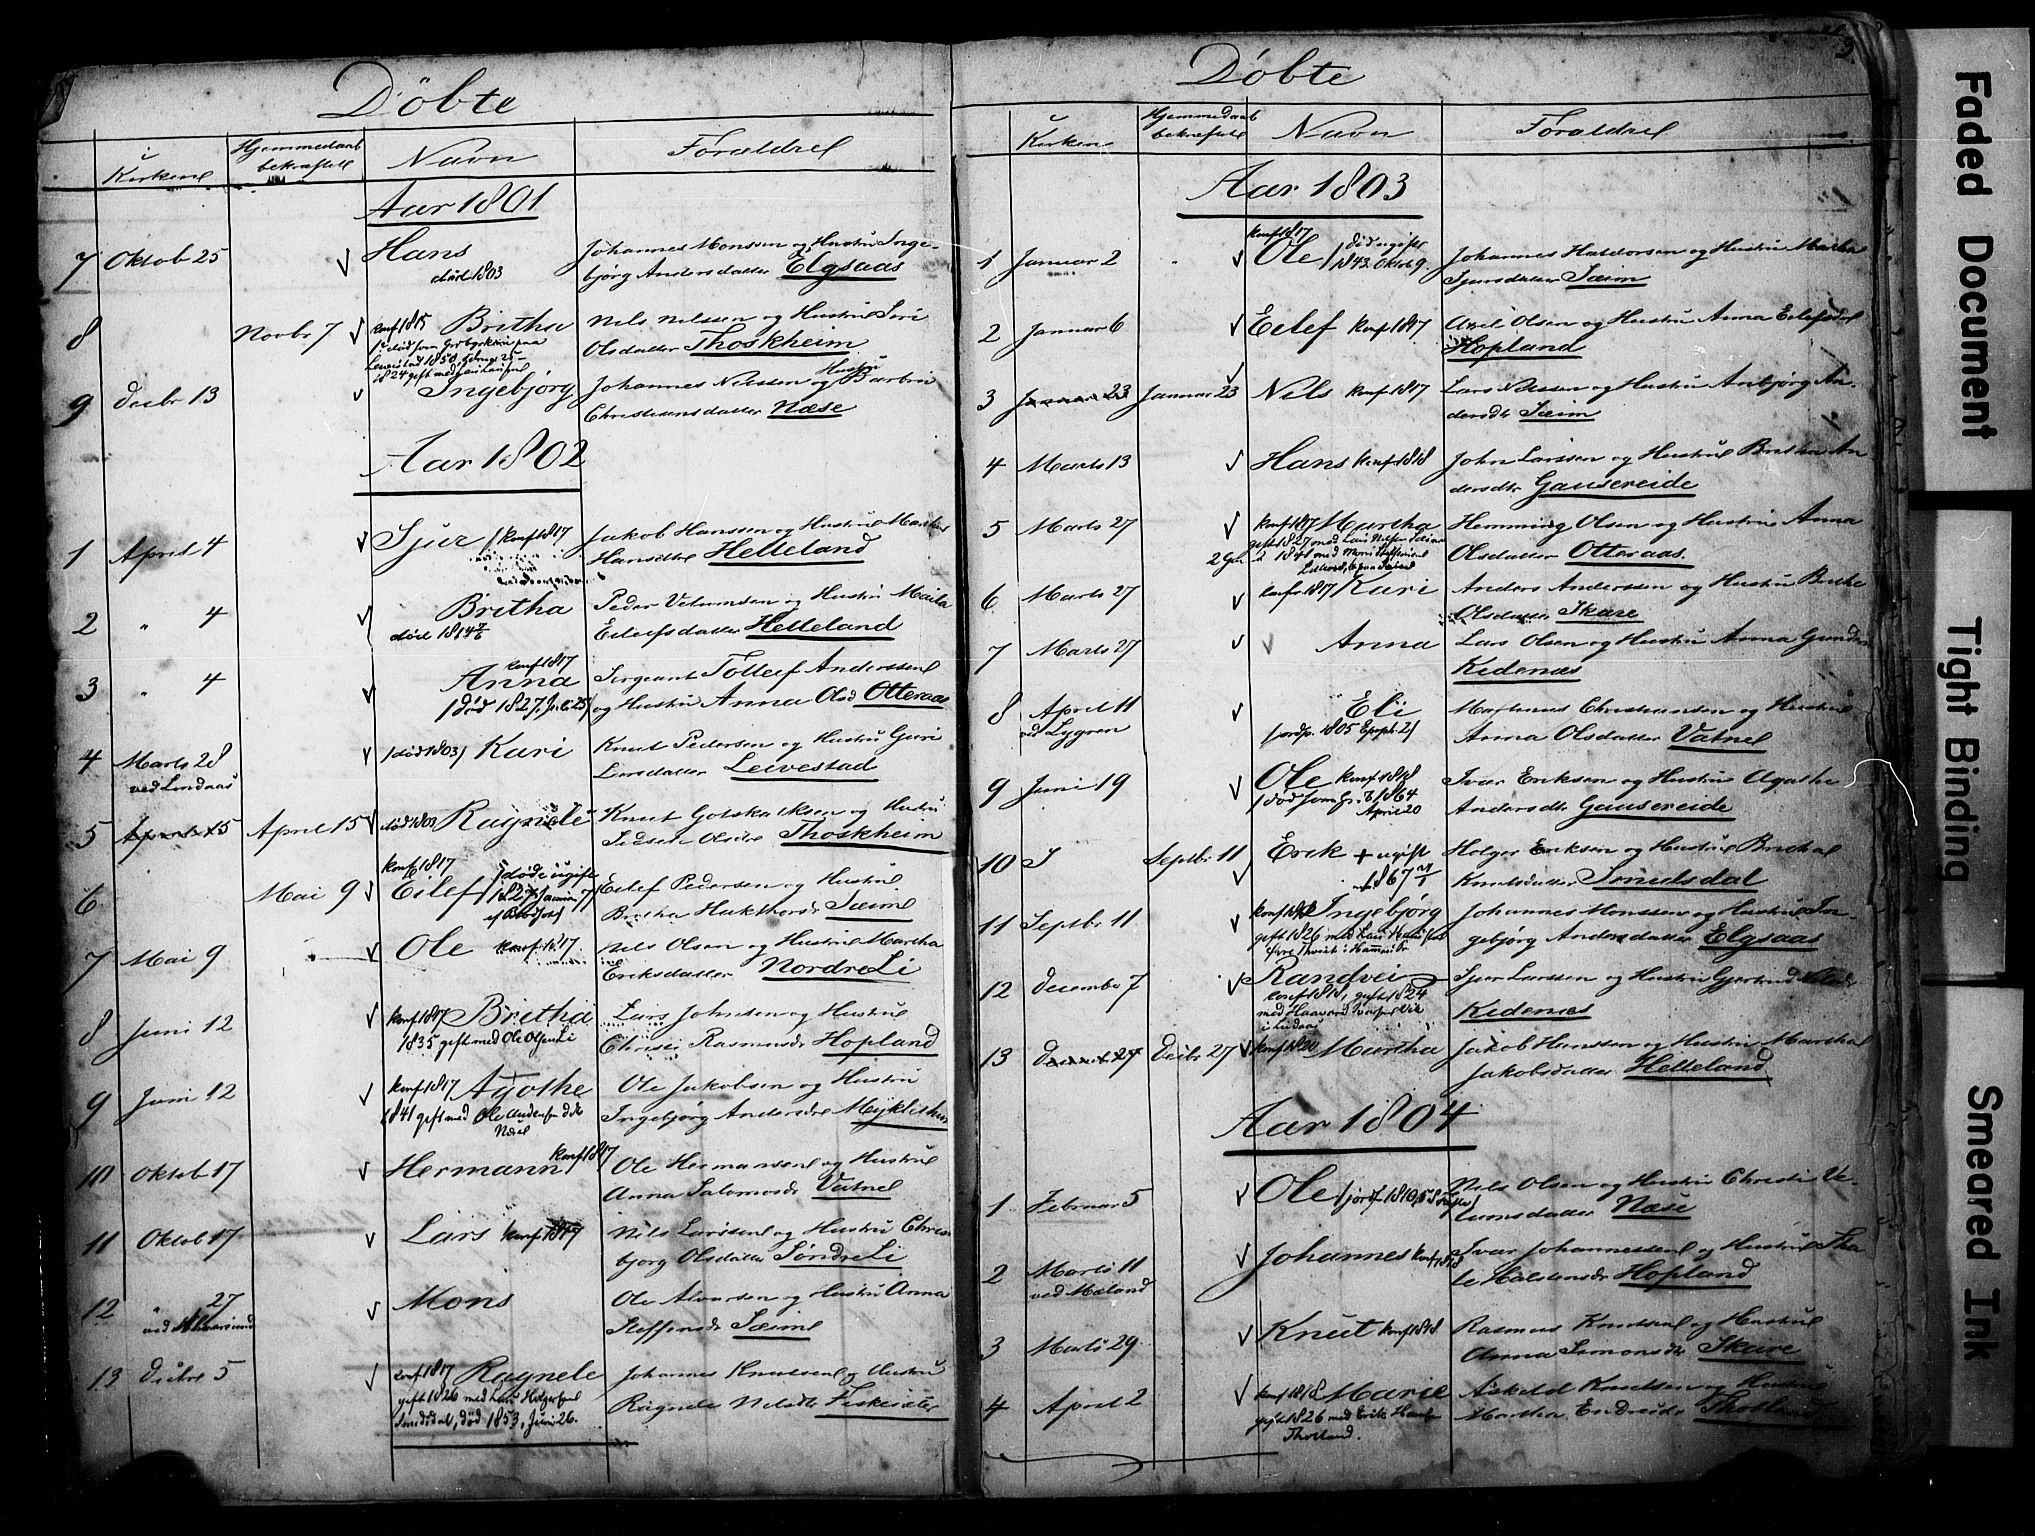 Döbte
i Kirkene
Hjemmedaab bekræftede
Navn
Forældre
Aar 1801
7 Oktob 25 Hans Johannes Monssen og Hustru Inge-
død 1803 björg Andersdatter Elgsaas
8 Novbr 7 konf 1815 Britha Nils Nilssen og Hustru Siri
Olsdatter Thoskheim
9 Decbr 13 Ingebjörg Johannes Nilssen og Hustru Barbra
Christensdatter Næse
Aar 1802
1 April 4 Sjur konf 1817 Jakob Hanssen og Hustru Martha
Hansdtr Helleland
2 " 4 Britha Peder Velumsen og Hustru Marita
død 1814 Eilefsdatter Helleland
konf 1817
3 " 4 Anna Sergeant Tollef Anderssen
/død 1827, Juli 25/ og Hustru Anna Olsd Otteraas
4 Marts 28 /død 1803/ Kari Knut Pedersen og Hustru Guri
ved Lindaas Larsdatter Leivestad
5 April 15 April 15 død 1803 Ragnele Knut Gotskalksen og Hustru
Olsdtr Thoskheim
konf 1817
6 Mai 9 Eilef /døde ugift 1827 Januar 7/ Eilef Pedersen og Hustru
Britha Sæim
7 Mai 9 Ole konf 1817 Nils Olsen og Hustru Martha
Eriksdatter Nordre Li
8 Juni 12 konf 1817 Britha Lars Johnsen og Hustru
1835 gift med Ole Olsen Li Christi Rasmusdr Hopland
9 Juni 12 konf 1817 Agothe Ole Jakobsen og Hustru
1841 gift med Ole Ingebjörg Andersdr Myklethun
Næse
10 Oktob 17 Hermann konf 1817 Ole Hermansen og Hustru
Anna Salomosdr Vatnel
11 Oktob 17 Lars konf 1817 Nils Larssen og Hustru
björg Olsdatter Söndre Li
12 " 27 Mons Ole Alversen og Hustru Anna
ved Alversund Steffensdr Sæim
13 Decbr 5 konf 1817 Ragnele Johannes Knutsen og Hustru
gift 1826 med Lars Holgersen Ragnele Nilsdtr Fiskeseter
Smidsdal, död 1853, Juni 26.
3.
Döbte
i Kirken
Hjemmedaab bekræftede
Navn
Forældre
Aar 1803
konf 1817
1 Januar 2 Ole /död ugift 1843 Oktob 9. Johannes Haldorsen og Hustru Martha
Sjursdatter Sæim
2 Januar 6 Eilef konf 1817 Axel Olsen og Hustru Anna Eilefsdr
Hopland
3 Januar 23 Januar 23 Nils konf 1817 Lars Nilssen og Hustru Anbjörg An-
dersdr Sæim
4 Marts 13 Hans konf 1818 John Larssen og Hustru Britha An
dersdtr Gausereide
5 Marts 27 konf 1817 Martha Hemming Olsen og Hustru Anna
gift 1827 med Lars Nilsen Olsdatter Otteraas.
6 Marts 27 konf 1817 Kari Anders Anderssen og Hustru Britha
Olsdatter Skare
7 Marts 27 Anna Lars Olsen og Hustru Anna
Kidenæs
8 April 11 Eli Christiansen og Hustru
ved Lygren /jordp. 1805 Anna Olsdatter Vatnel
9 Juni 19 Ole konf 1818 Ivar Eriksen og Hustru Agathe
1864 April 20 Andersdtr Gausereide
10 Septbr 11 Erik + ugift Holger Eriksen og Hustru Britha
1867 Knutsdatter Smidsdal
11 Septbr 11 Ingebjörg Johannes Monssen og Hustru In-
gift 1826 med Lars gebjörg Andersdatter Elgsaas
12 December 7 Randvei Sjur Larssen og Hustru Gjertrud Nilsdr
gift 1824 Kidenæs
med Haavard
i Lindaas
13 Decbr 27 Decbr 27 konf 1820 Martha Jakob Hanssen og Hustru Martha
Jakobsdatter Helleland
Aar 1804
1 Februar 5 Ole Nils Olsen og Hustru Christi Ve-
lumsdatter Næse
2 Marts 11 Johannes konf 1818 Ivar Johannessen og Hustru
ved Mæland Halstensdr Hopland
3 Marts 29 Knut konf 1818 Rasmus Knutsen og Hustru
Anna Simonsdr Skare
4 April 2 konf 1818 Marie Askeld Knutsen og Hustru
gift 1826 med Erik Martha Endresdr Thotland
Thotland.
Faded Document
Tight Binding
Smeared Ink